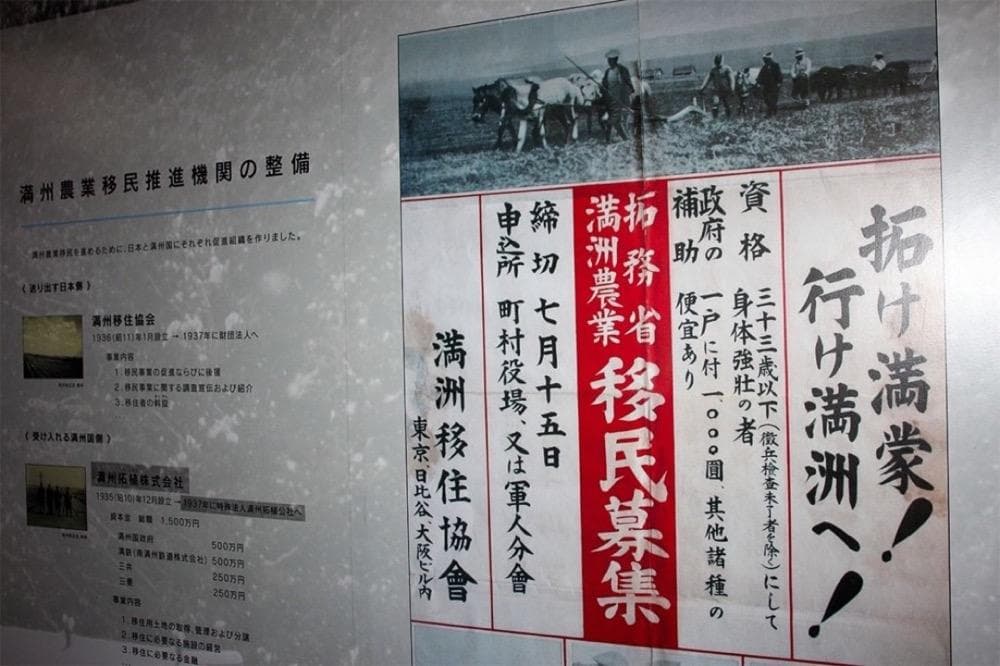 満州農業移民推進機関の整備
満州農業移民を進めるために、日本と満州国にそれぞれ促進組織を作りました。
《 送り出す日本側 》
満州移住協会
1936(昭11)年1月設立 → 1937年に財団法人へ
事業内容
1. 移民事業の促進ならびに後援
2. 移民事業に関する調査宣伝および紹介
3. 移住者の斡旋
《 受け入れる満州国側 》
満州拓植株式会社
1935(昭10)年12月設立 → 1937年に特殊法人満州拓植公社へ
資本金 総額 1,500万円
満州国政府 500万円
満鉄(南満州鉄道株式会社) 500万円
三井 250万円
三菱 250万円
事業内容
1. 移住用土地の取得、管理および分譲
2. 移住に必要なる施設の経営
3. 移住に必要なる金融
拓け満蒙!
行け満洲へ!
資格 三十三歳以下(徴兵検査未了者を除く)にして
身体強壮の者
政府の補助 一戸に付一、〇〇〇圓、其他諸種の
便宜あり
拓務省
満洲農業
移民募集
締切 七月十五日
申込所 町村役場、又は軍人分會
満洲移住協會
東京、日比谷、大阪ビル内